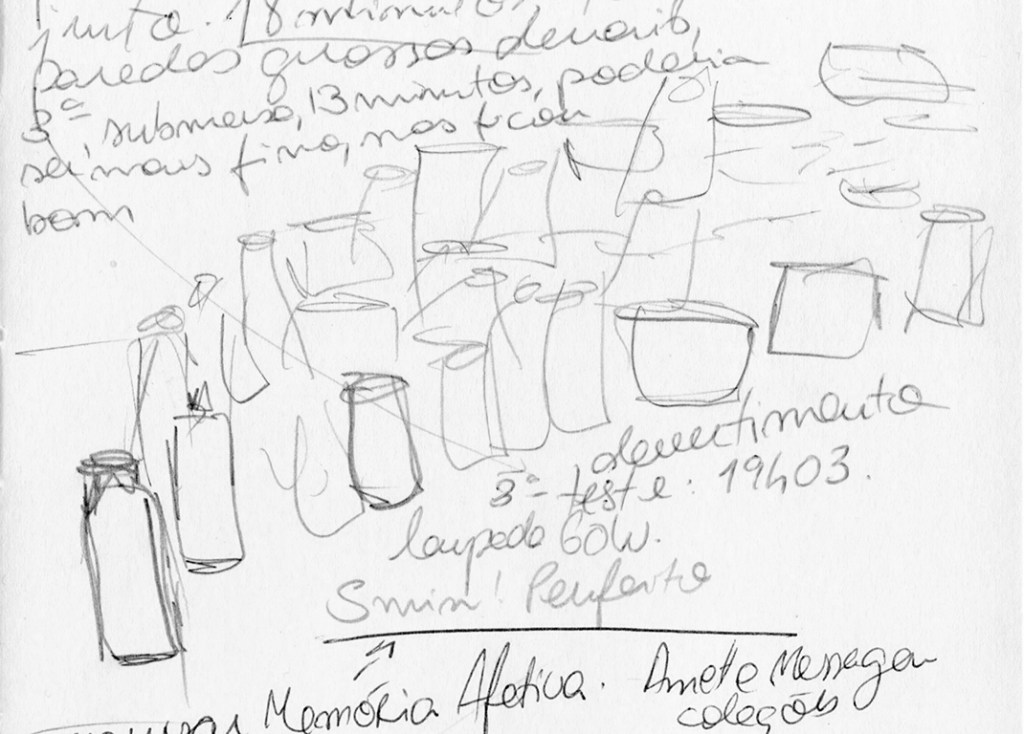 junto. 18 minutos,
paredes grossas demais,
3ª, submerso, 13 minutos, poderia
ser mais fino, mas ficou
bom
derretimento
3º teste: 19h03.
lampada 60w.
5min! Perfeito
Memória Afetiva. Annette Messager
coleções